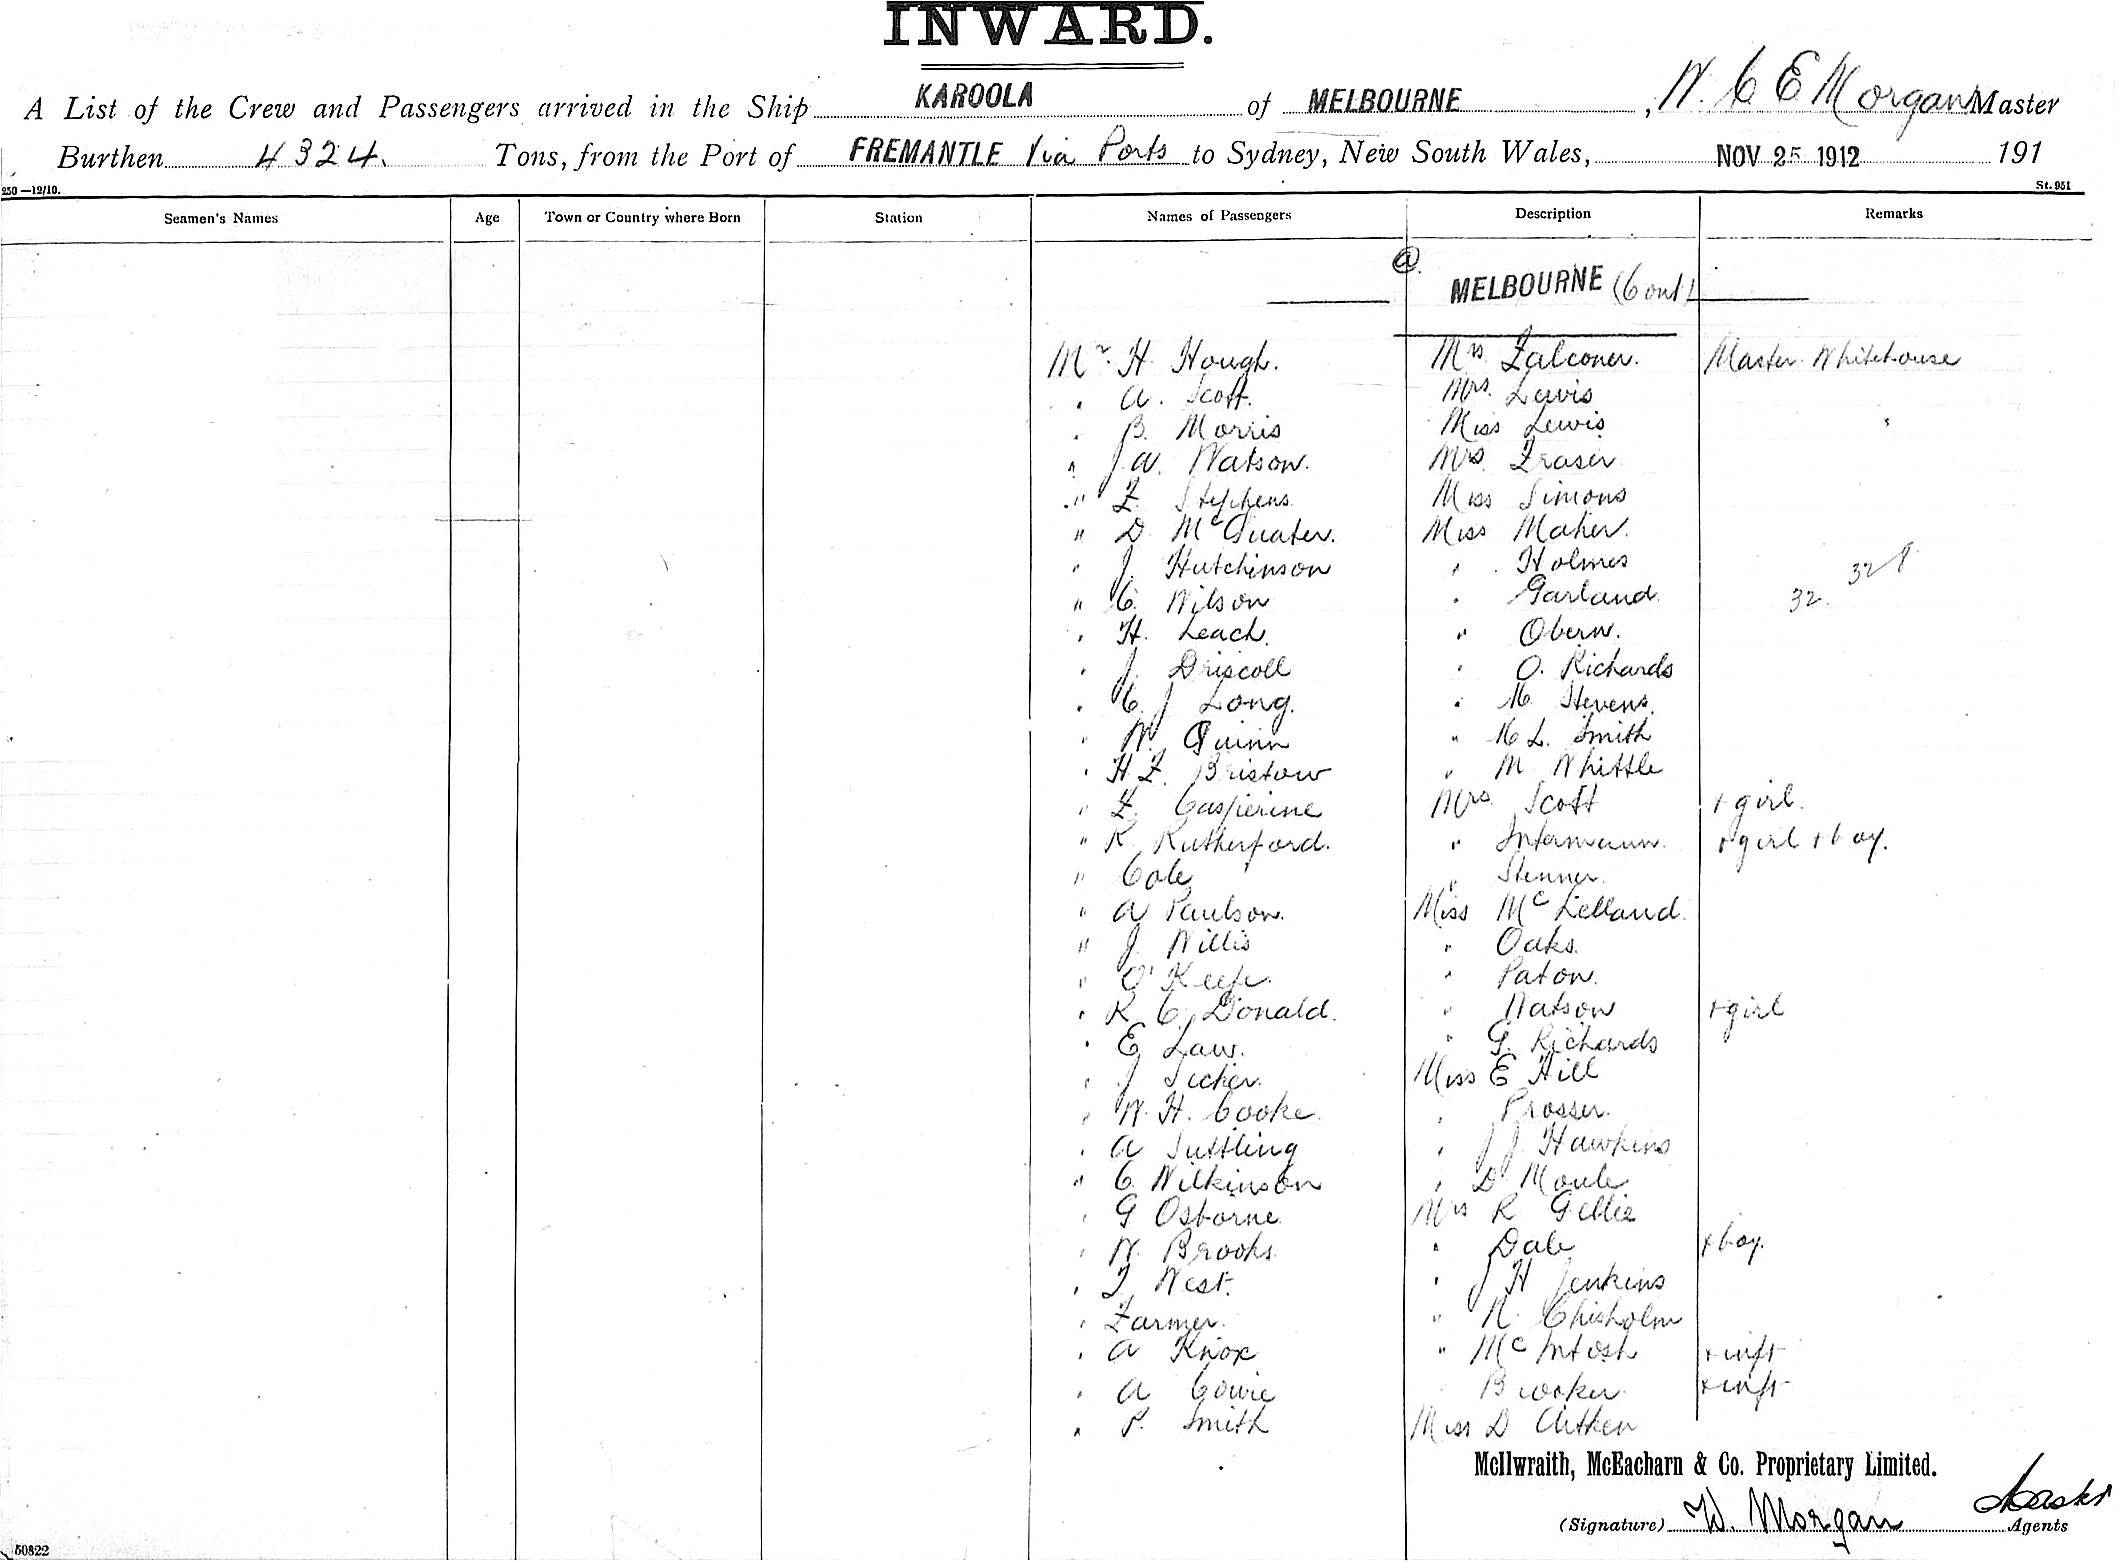 INWARD.
A List of the Crew and Passengers arrived in the Ship KAROOLA of MELBOURNE, W. C E Morgan Master
Burthen 4324. Tons, from the Port of FREMANTLE Via Ports to Sydney, New South Wales, NOV 25 1912 191
250—12/10. St. 951
Seamen's Names Age Town or Country where Born Station Names of Passengers Description Remarks
@ MELBOURNE (Cont)
Mr. H. Hough. Mrs. Falconer. Master Whitehouse
" A. Scott. Mrs. Lewis
" B. Morris Miss Lewis
" J. W. Watson. Mrs. Fraser
" F. Stephens. Miss Simons
" D. McQuater. Miss Maher.
" J. Hutchinson " Holmes 32
" C. Wilson " Garland. 32.
" H. Leach. " Obern.
" J. Driscoll " O. Richards
" C. J Long. " M. Stevens.
" W. Quinn " M L. Smith
" H F. Bristow " M Whittle
" F. Casperine Mrs. Scott + girl.
" R. Rutherford. " Intermann. + girl + boy.
" Cole " Stenner.
" A Paulson. Miss McLelland.
" J. Willis " Oaks.
" O'Keefe. " Paton.
" R C. Donald. " Watson + girl
" E Law. " G. Richards
" J Miss E Hill
" W. H. Cooke. " Prosser.
" A Suttling " J J Hawkins
" C Wilkinson " D Moule
" G Osborne. Mrs R Gillie
" W. Brooks. " Dale + boy.
" T West. " J H Jenkins
" Farmer. " N. Chisholm
" A Knox " McIntosh + inft
" A Cowie " Brooker + inft
" P. Smith Miss D Aitken
McIlwraith, McEacharn & Co. Proprietary Limited.
(Signature) W. Morgan Agents
50822